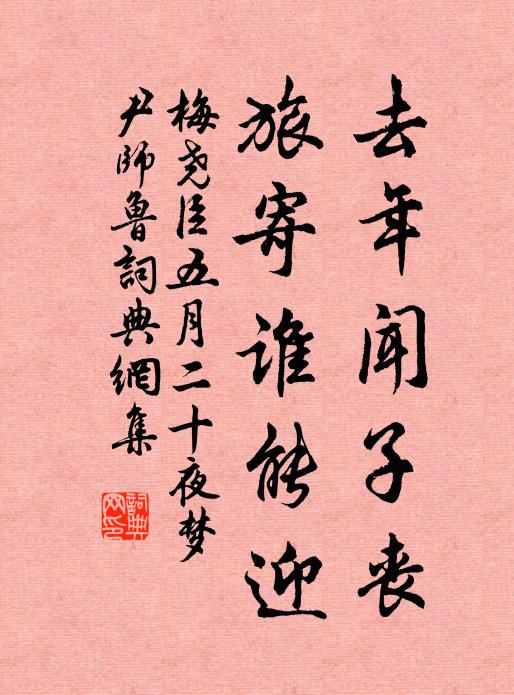 去年闻子丧
旅寄谁能迎
梅尧臣五月二十夜梦
尹师鲁詞典網集
詞典
网印